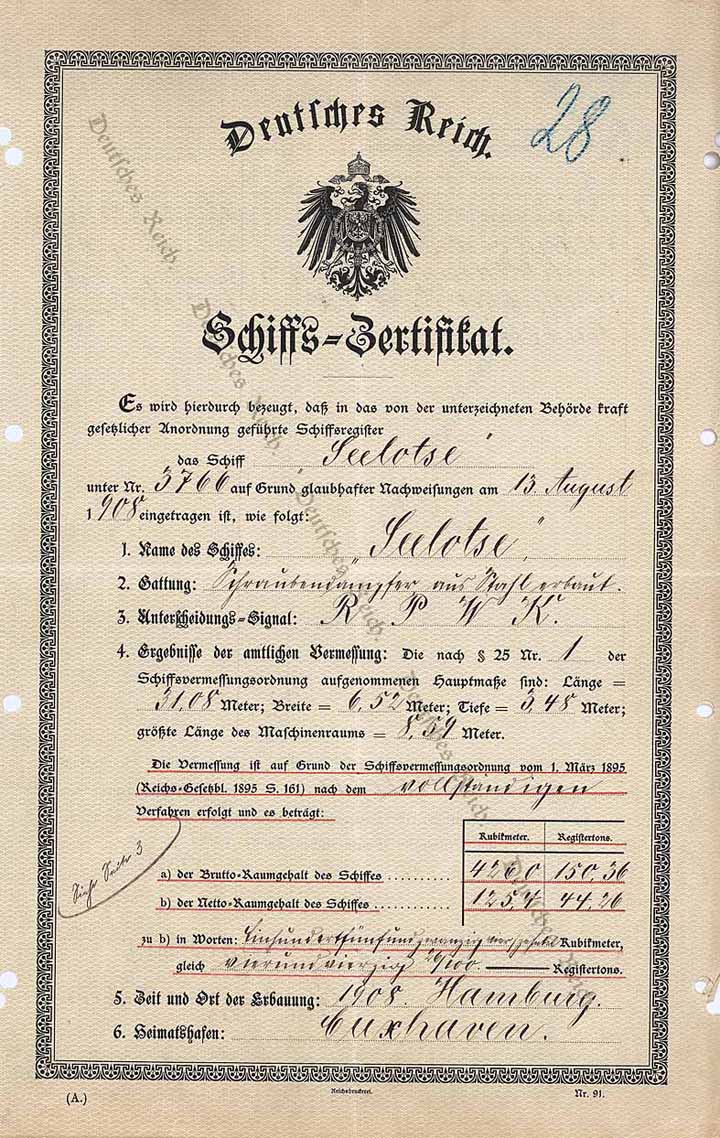 Deutsches Reich.
28
Schiffs-Zertifikat.
Es wird hierdurch bezeugt, daß in das von der unterzeichneten Behörde kraft
gesetzlicher Anordnung geführte Schiffsregister
das Schiff „Seelotse“
unter Nr. 3766 auf Grund glaubhafter Nachweisungen am 13. August
1908 eingetragen ist, wie folgt:
1. Name des Schiffes: „Seelotse“,
2. Gattung: Schraubendampfer aus Stahl erbaut.
3. Unterscheidungs-Signal: R P W K.
4. Ergebnisse der amtlichen Vermessung: Die nach § 25 Nr. 1 der
Schiffsvermessungsordnung aufgenommenen Hauptmaße sind: Länge =
31,08 Meter; Breite = 6,52 Meter; Tiefe = 3,48 Meter;
größte Länge des Maschinenraums = 8,59 Meter.
Die Vermessung ist auf Grund der Schiffsvermessungsordnung vom 1. März 1895
(Reichs-Gesetzbl. 1895 S. 161) nach dem vollständigen
Verfahren erfolgt und es beträgt:
Kubikmeter. Registertons.
Siehe Seite 3
a) der Brutto-Raumgehalt des Schiffes .......... 426,0 150,36
b) der Netto-Raumgehalt des Schiffes .......... 125,4 44,26
zu b) in Worten: Einhundertfünfundzwanzig vier zehntel Kubikmeter,
gleich vierundvierzig 26/100. Registertons.
5. Zeit und Ort der Erbauung: 1908 Hamburg.
6. Heimatshafen: Cuxhaven.
(A.) Reichsdruckerei. Nr. 91.
Deutsches Reich.
Deutsches Reich.
Deutsches Reich
Deutsches Reich
Deutsches Reich